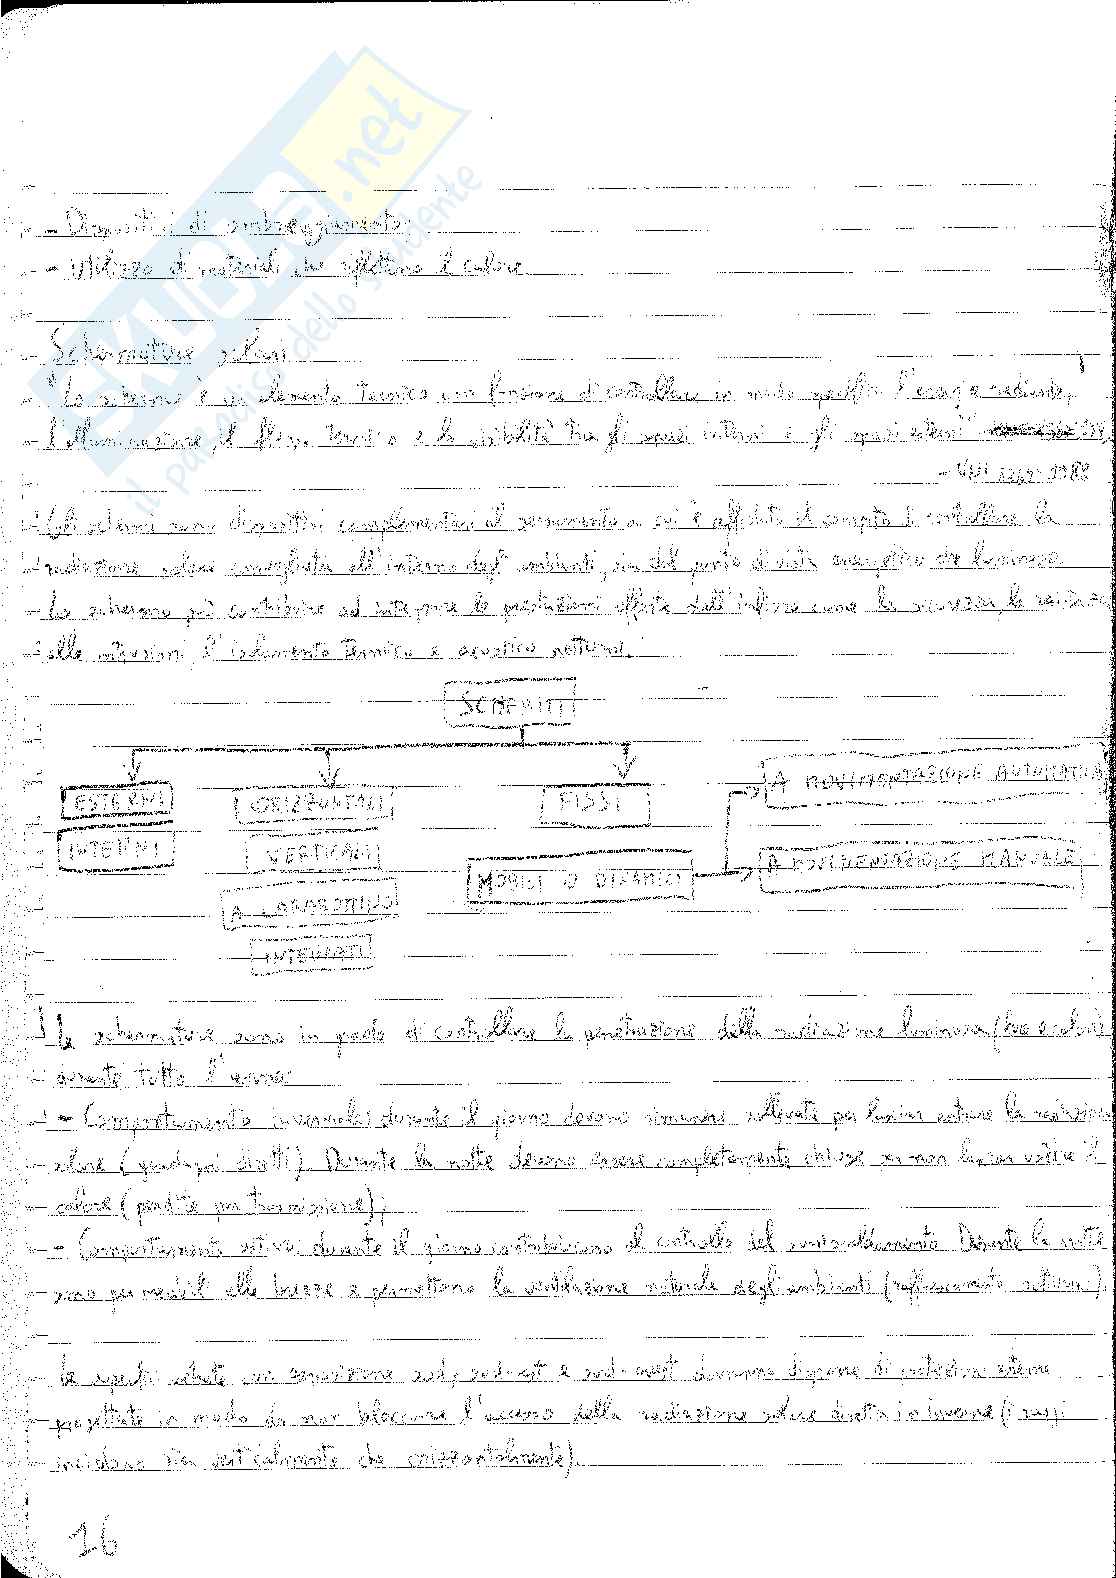 - Dispositivi di ombreggiamento;
- Utilizzo di materiali che riflettono il calore
Schermature solari
"Lo schermo è un elemento tecnico con funzione di controllare in modo l'energia radiante,
l'illuminazione, il flusso termico e la visibilità tra gli spazi interni e gli spazi esterni"
- UNI 1988
Gli schermi sono dispositivi complementari al serramento a cui è affidato il compito di controllare la
radiazione solare convogliata all'interno degli ambienti, sia dal punto di vista energetico che luminoso.
Lo schermo può contribuire ad integrare le prestazioni offerte dall'infisso come la sicurezza, la resistenza
alle intrusioni, l'isolamento termico e acustico notturni.
SCHERMI
ESTERNI ORIZZONTALI FISSI A MOVIMENTAZIONE AUTOMATICA
INTERNI VERTICALI MOBILI O DINAMICI A MOVIMENTAZIONE MANUALE
A CARABOTTINO
INTEGRATI
Le schermature sono in grado di controllare la penetrazione della radiazione luminosa (luce e calore)
durante tutto l'anno:
- Comportamento invernale: durante il giorno devono rimanere sollevate per lasciar entrare la radiazione
solare (guadagni diretti). Durante la notte devono essere completamente chiuse per non lasciar uscire il
calore (perdite per trasmissione);
- Comportamento estivo: durante il giorno contribuiscono al controllo del surriscaldamento. Durante la notte
sono permeabili alle brezze e permettono la ventilazione naturale degli ambienti (raffrescamento notturno).
Le superfici vetrate con esposizione sud, sud-est e sud-ovest dovranno disporre di protezioni esterne
progettate in modo da non bloccare l'accesso della radiazione solare diretta in inverno (i raggi
incidono più verticalmente che orizzontalmente).
16
SKUOLA.net
il paradiso dello studente